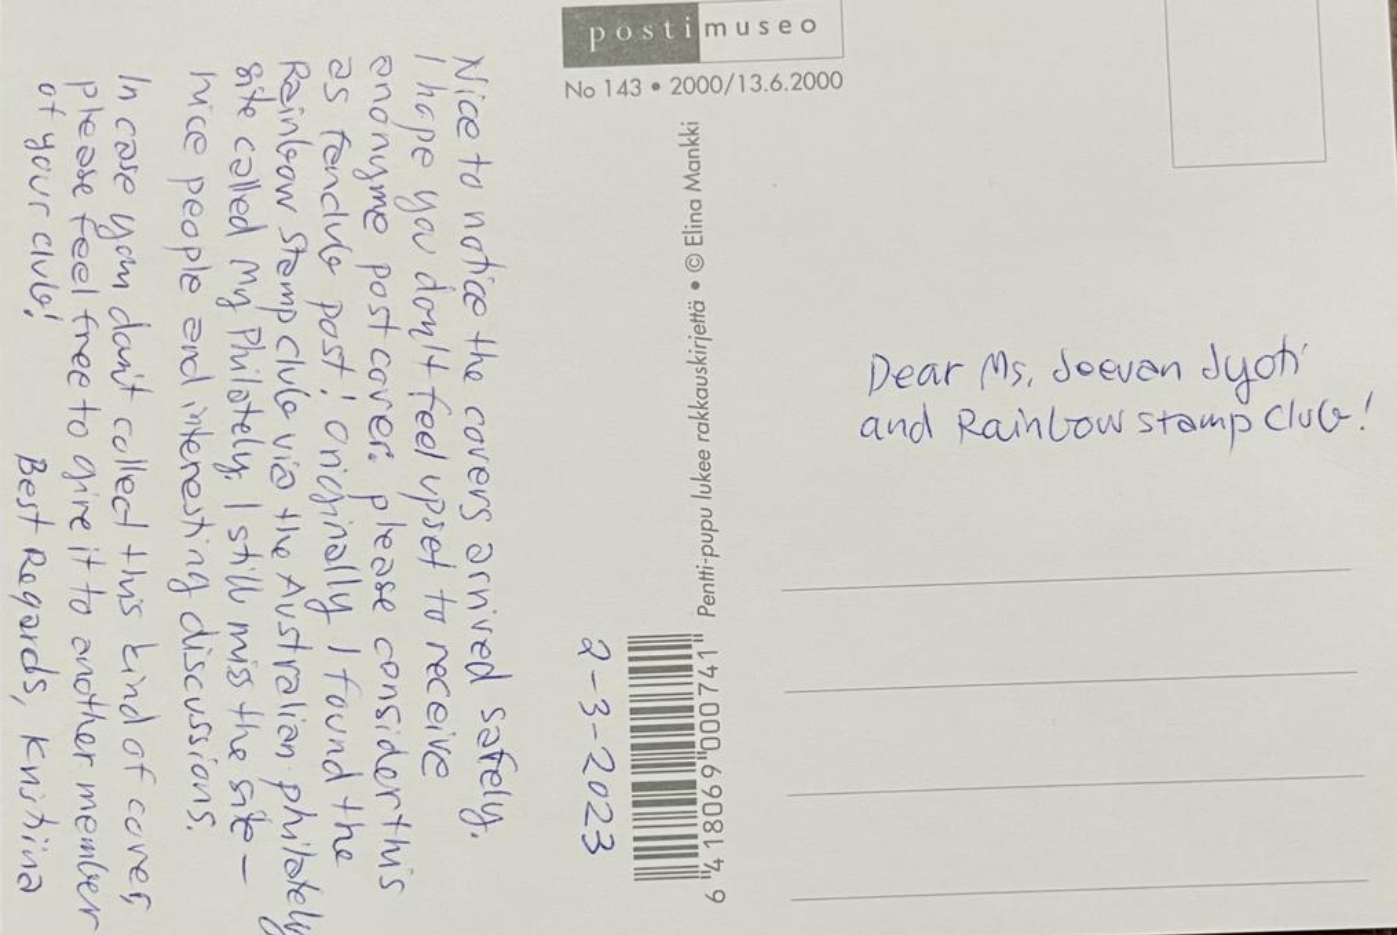 posti museo
No 143 • 2000/13.6.2000
Dear Ms. Jeevan Jyoti
and Rainbow stamp Club!
Nice to notice the covers arrived safely.
I hope you don't feel upset to receive
anonyme post cover: please consider this
as tandule post! Originally I found the
Rainbow stamp club via the Australian philately
site called My Philately. I still miss the site –
nice people and interesting discussions.
In case you don't collect this kind of cover,
please feel free to give it to another member
of your club!
Best Regards, Kristiina
2-3-2023
Pentti-pupu lukee rakkauskirjettä • © Elina Mankki
6 "418069"000741"